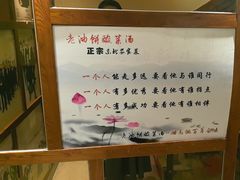 老油饼酸菜汤
正宗
一个人 能走多远 要看他与谁同行
一个人 有多优秀 要看他有谁指点
一个人 有多成功 要看他有谁相伴
老油饼酸菜汤